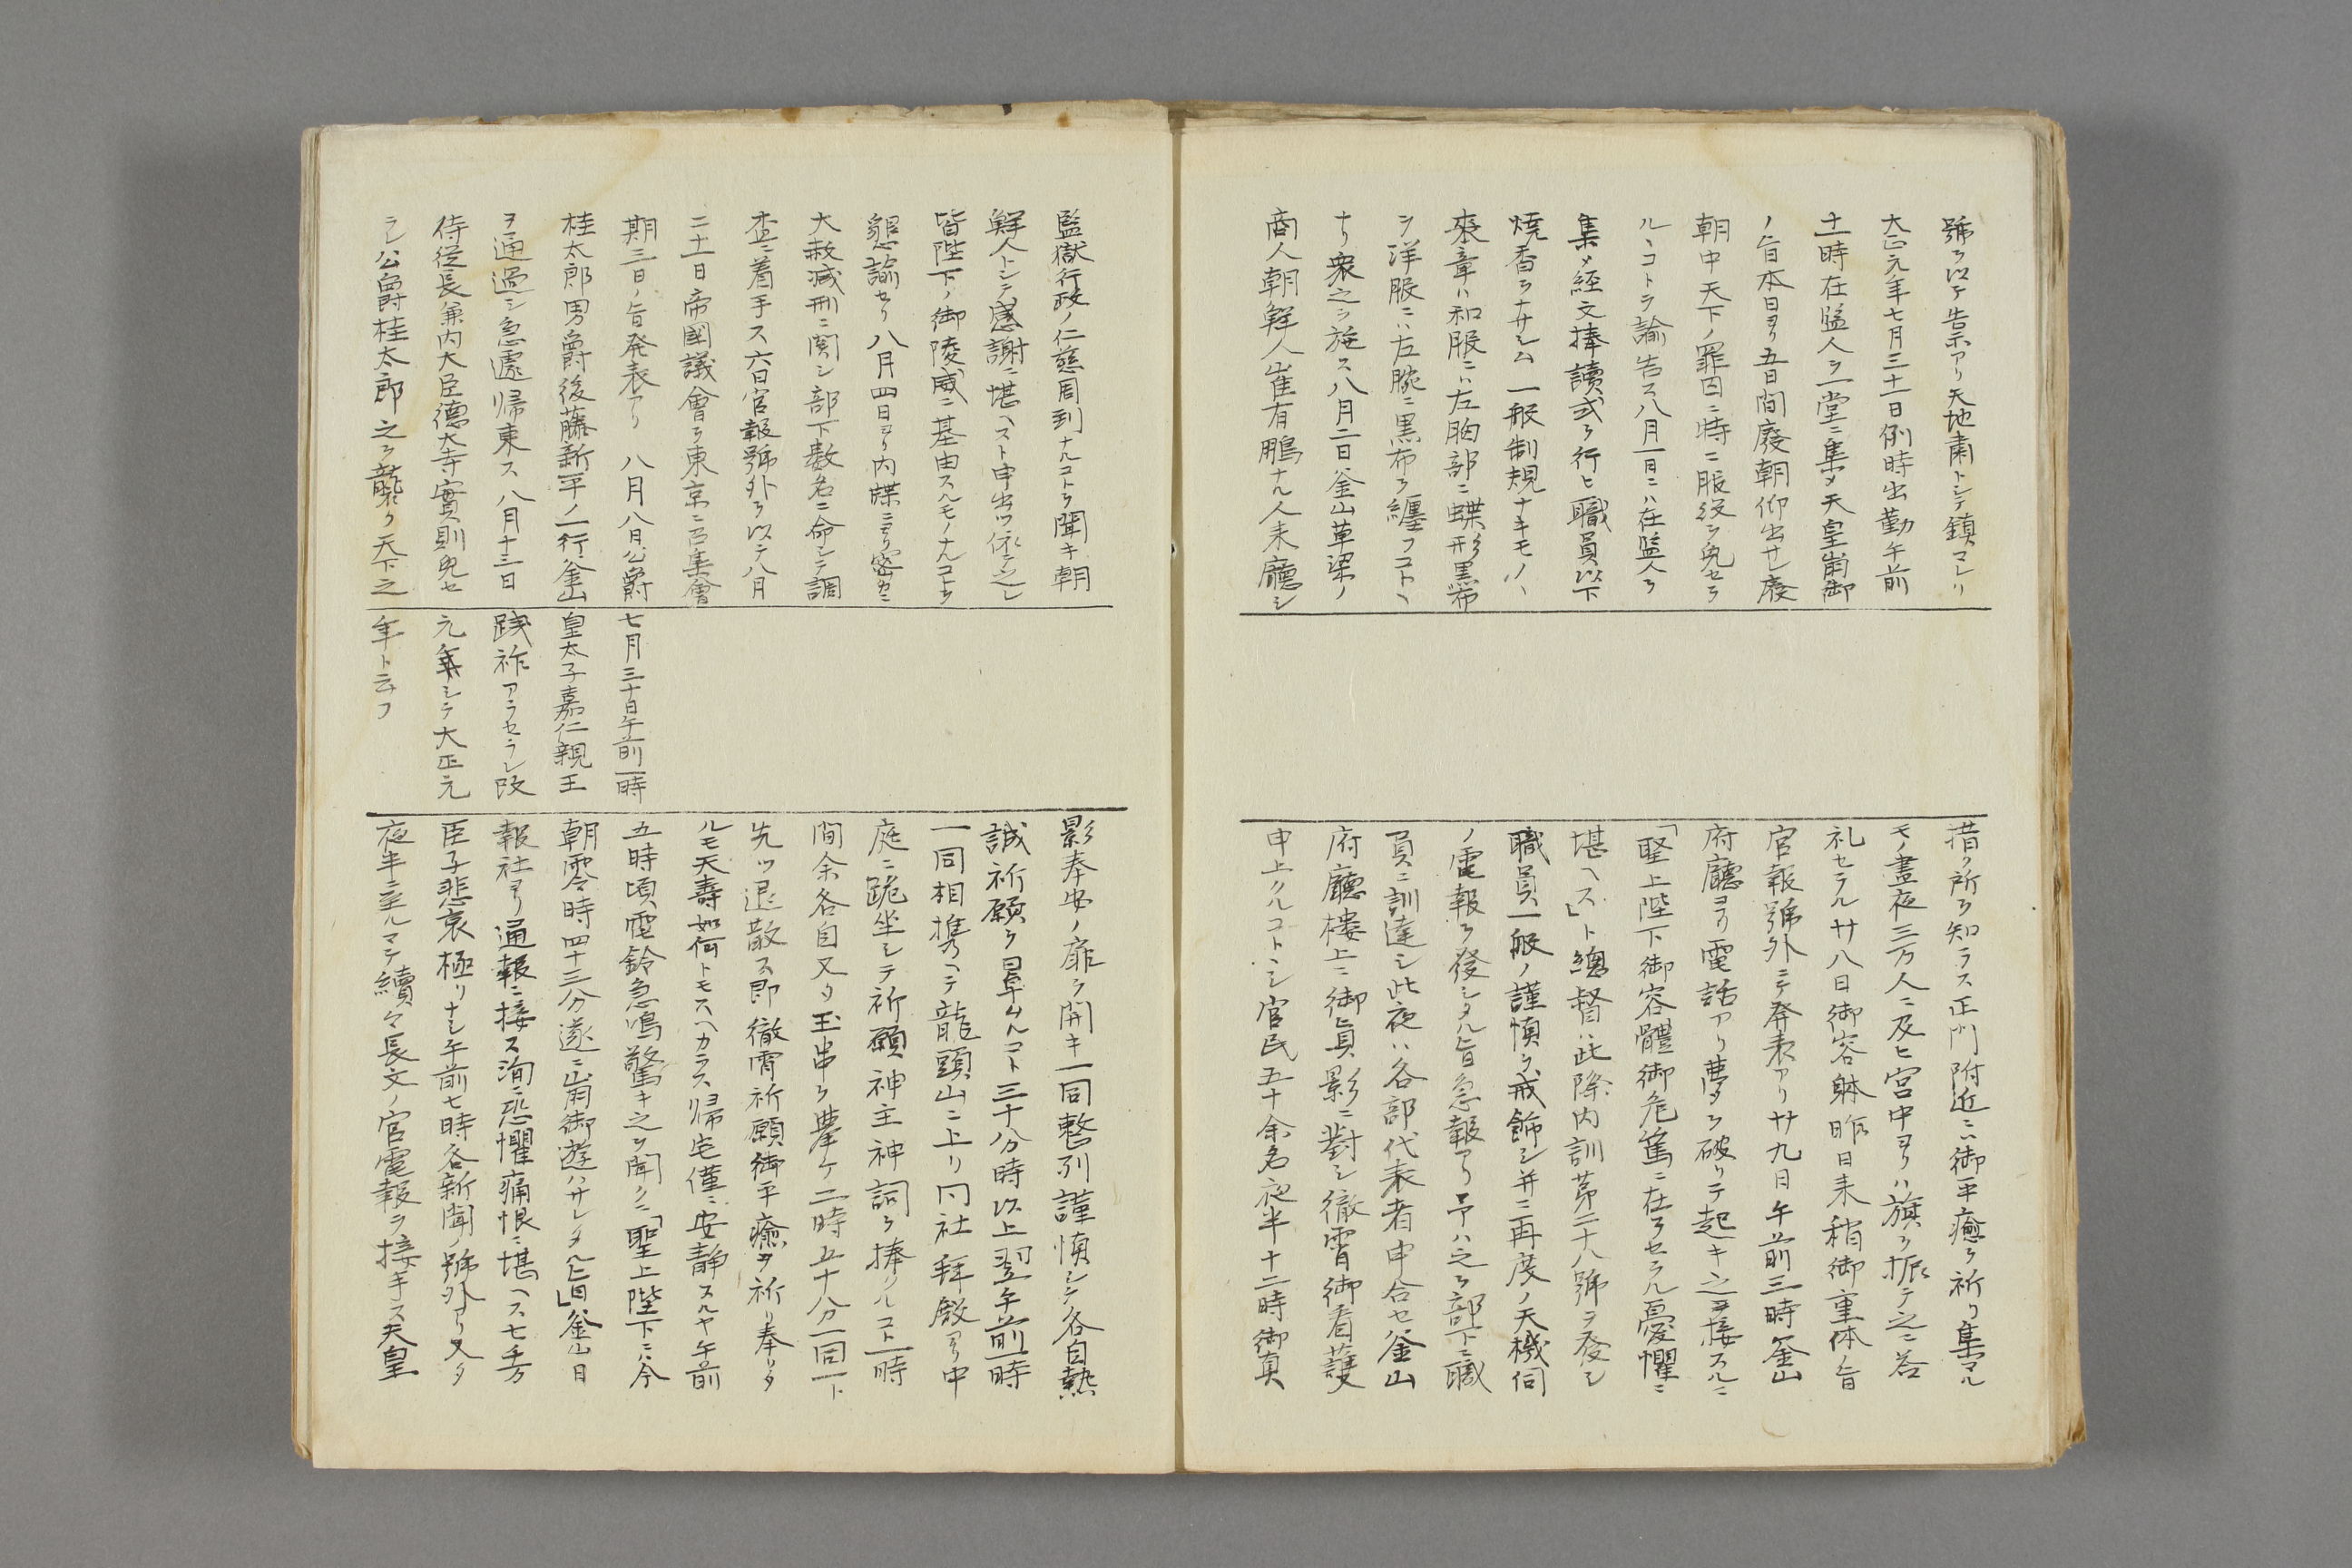 號ヲ以テ告示アリ天地肅トシテ鎮マレリ
大正元年七月三十一日例時出勤午前
十一時在監人ヲ一堂ニ集メ天皇崩御
ノ旨本日ヨリ五日間廢朝仰出サレ廢
朝中天下ノ罪囚ニ特ニ服役ヲ免セラ
ルヽコトヲ諭告ス八月一日ニハ在監人ヲ
集メ経文捧讀式ヲ行ヒ職員以下
焼香ヲナサシム一般制規ナキモノハ
喪章ハ和服ニハ左胸部ニ蝶形黒布
ヲ洋服ニハ左腕ニ黒布ヲ纏フコトヽ
ナリ衆之ヲ施ス八月二日釜山草梁ノ
商人朝鮮人崔有鵬ナル人来廳シ
措ク所ヲ知ラス正門附近ニハ御平癒ヲ祈リ集マル
モノ晝夜三万人ニ及ヒ宮中ヨリハ旗ヲ振テ之ニ答
礼セラル廿八日御容躰昨日来稍御重体ノ旨
官報號外ニテ発表アリ廿九日午前三時釜山
府廳ヨリ電話アリ夢ヲ破リテ起キ之ヲ接スルニ
「聖上陛下御容體御危篤ニ在ラセラル憂懼ニ
堪ヘス」ト總督ハ此際内訓第二十八號ヲ發シ
職員一般ノ謹慎ヲ戒飾シ并ニ再度ノ天機伺
ノ電報ヲ發シタル旨急報アリ予ハ之ヲ部下職
員ニ訓達シ此夜ハ各部代表者申合セ釜山
府廳楼上ニ御眞影ニ對シ徹霄御看護
申上クルコトヽシ官民五十余名夜半十二時御眞
監獄行政ノ仁慈周到ナルコトヲ聞キ朝
鮮人トシテ感謝ニ堪ヘスト申出ツ依テ之レ
皆陛下ノ御陵威ニ基由スルモノナルコトヲ
懇諭セリ八月四日ヨリ内牒ニヨリ密カニ
大赦減刑ニ関シ部下数名ニ命シテ調
査ニ着手ス六日官報號外ヲ以テ八月
二十一日帝國議會ヲ東京ニ召集會
期三日ノ旨発表アリ 八月八日公爵
桂太郎男爵後藤新平ノ一行釜山
ヲ通過シ急遽帰東ス八月十三日
侍従長兼内大臣德大寺實則免セ
ラレ公爵桂太郎之ヲ襲ク天下之
七月三十日午前一時
皇太子嘉仁親王
踐祚アラセラレ改
元シテ大正元
年ト云フ
影奉安ノ扉ヲ開キ一同整列謹慎シテ各自熱
誠祈願ヲ罩ムルコト三十分時以上翌午前一時
一同相携ヘテ龍頭山ニ上リ同社拜殿アリ中
庭ニ跪坐シテ祈願神主神詞ヲ捧クルコト一時
間余各自又タ玉串ヲ奉ケ二時五十分一同一ト
先ツ退散ス即徹霄祈願御平癒ヲ祈リ奉リタ
ルモ天壽如何トモスヘカラス帰宅僅ニ安静スルヤ午前
五時頃電鈴急鳴驚キ之ヲ聞クニ「聖上陛下ニハ今
朝零時四十三分遂ニ崩御遊ハサレタル旨」釜山日
報社ヨリ通報ニ接ス洵ニ恐懼痛恨ニ堪ヘス七千万
臣子悲哀極リナシ午前七時各新聞ノ號外アリ又タ
夜半ニ至ルマテ續々長文ノ官電報ヲ接手ス天皇